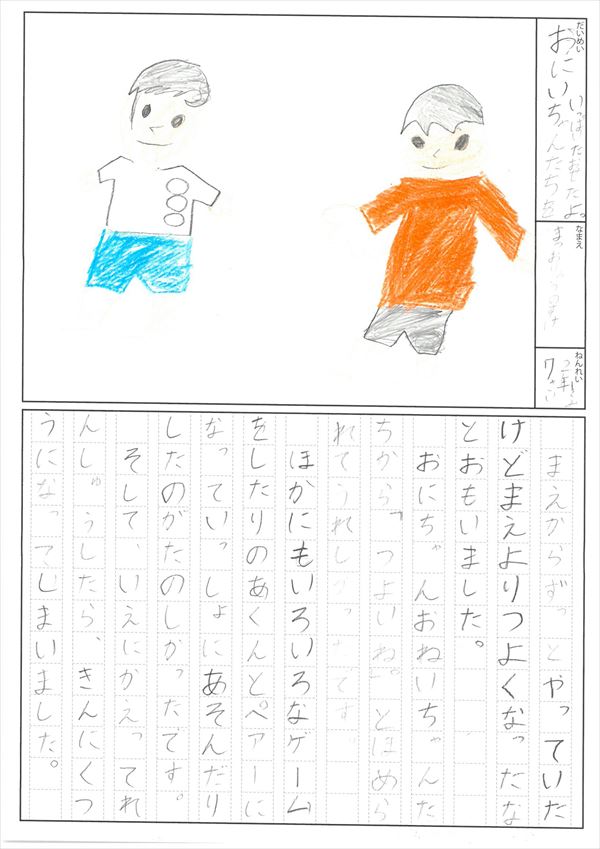 だいめい
おにいちゃんたちを
いっぱいたおしたよ。
なまえ
ねんれい
7さい
まえからずっとやっていた
けどまえよりつよくなったな
とおもいました。
おにちゃんおねいちゃんた
ちから「つよいね。」とほめら
れてうれしかったです。
ほかにもいろいろなゲーム
をしたりのあくんとペアーに
なっていっしょにあそんだり
したのがたのしかったです。
そして、いえにかえってれ
んしゅうしたら、きんにくつ
うになってしまいました。